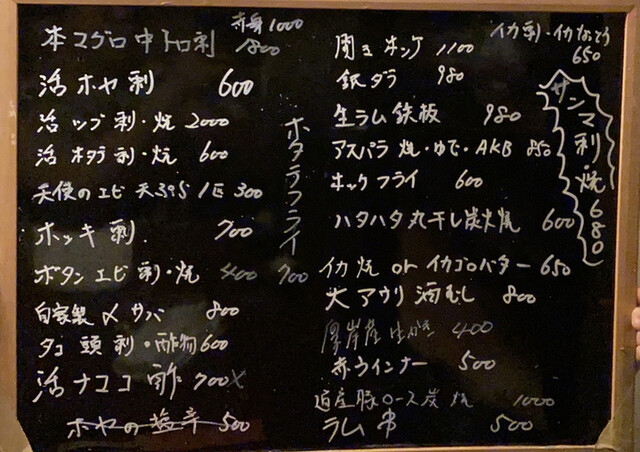 赤身1000
本マグロ中トロ刺 1800
活ホヤ刺 600
活ツブ刺・焼 2000
活ホタテ刺・焼 600
天使のエビ 天ぷら 1匹 300
ホッキ刺 700
ボタンエビ刺・焼 400
自家製〆サバ 800
タコ頭刺・酢物 600
活ナマコ酢 700
ホヤの塩辛 500
ホタテフライ 700
開きホッケ 1100
銀ダラ 980
生ラム鉄板 980
アスパラ 焼・ゆで・AKB 850
ホッケフライ 600
ハタハタ丸干し炭火焼 600
イカ焼 or イカゴロバター 650
大アサリ酒むし 800
厚岸産生がき 400
赤ウインナー 500
道産豚ロース炭焼 1000
ラム串 500
イカ刺・イカなっとう
650
サンマ刺・焼 680